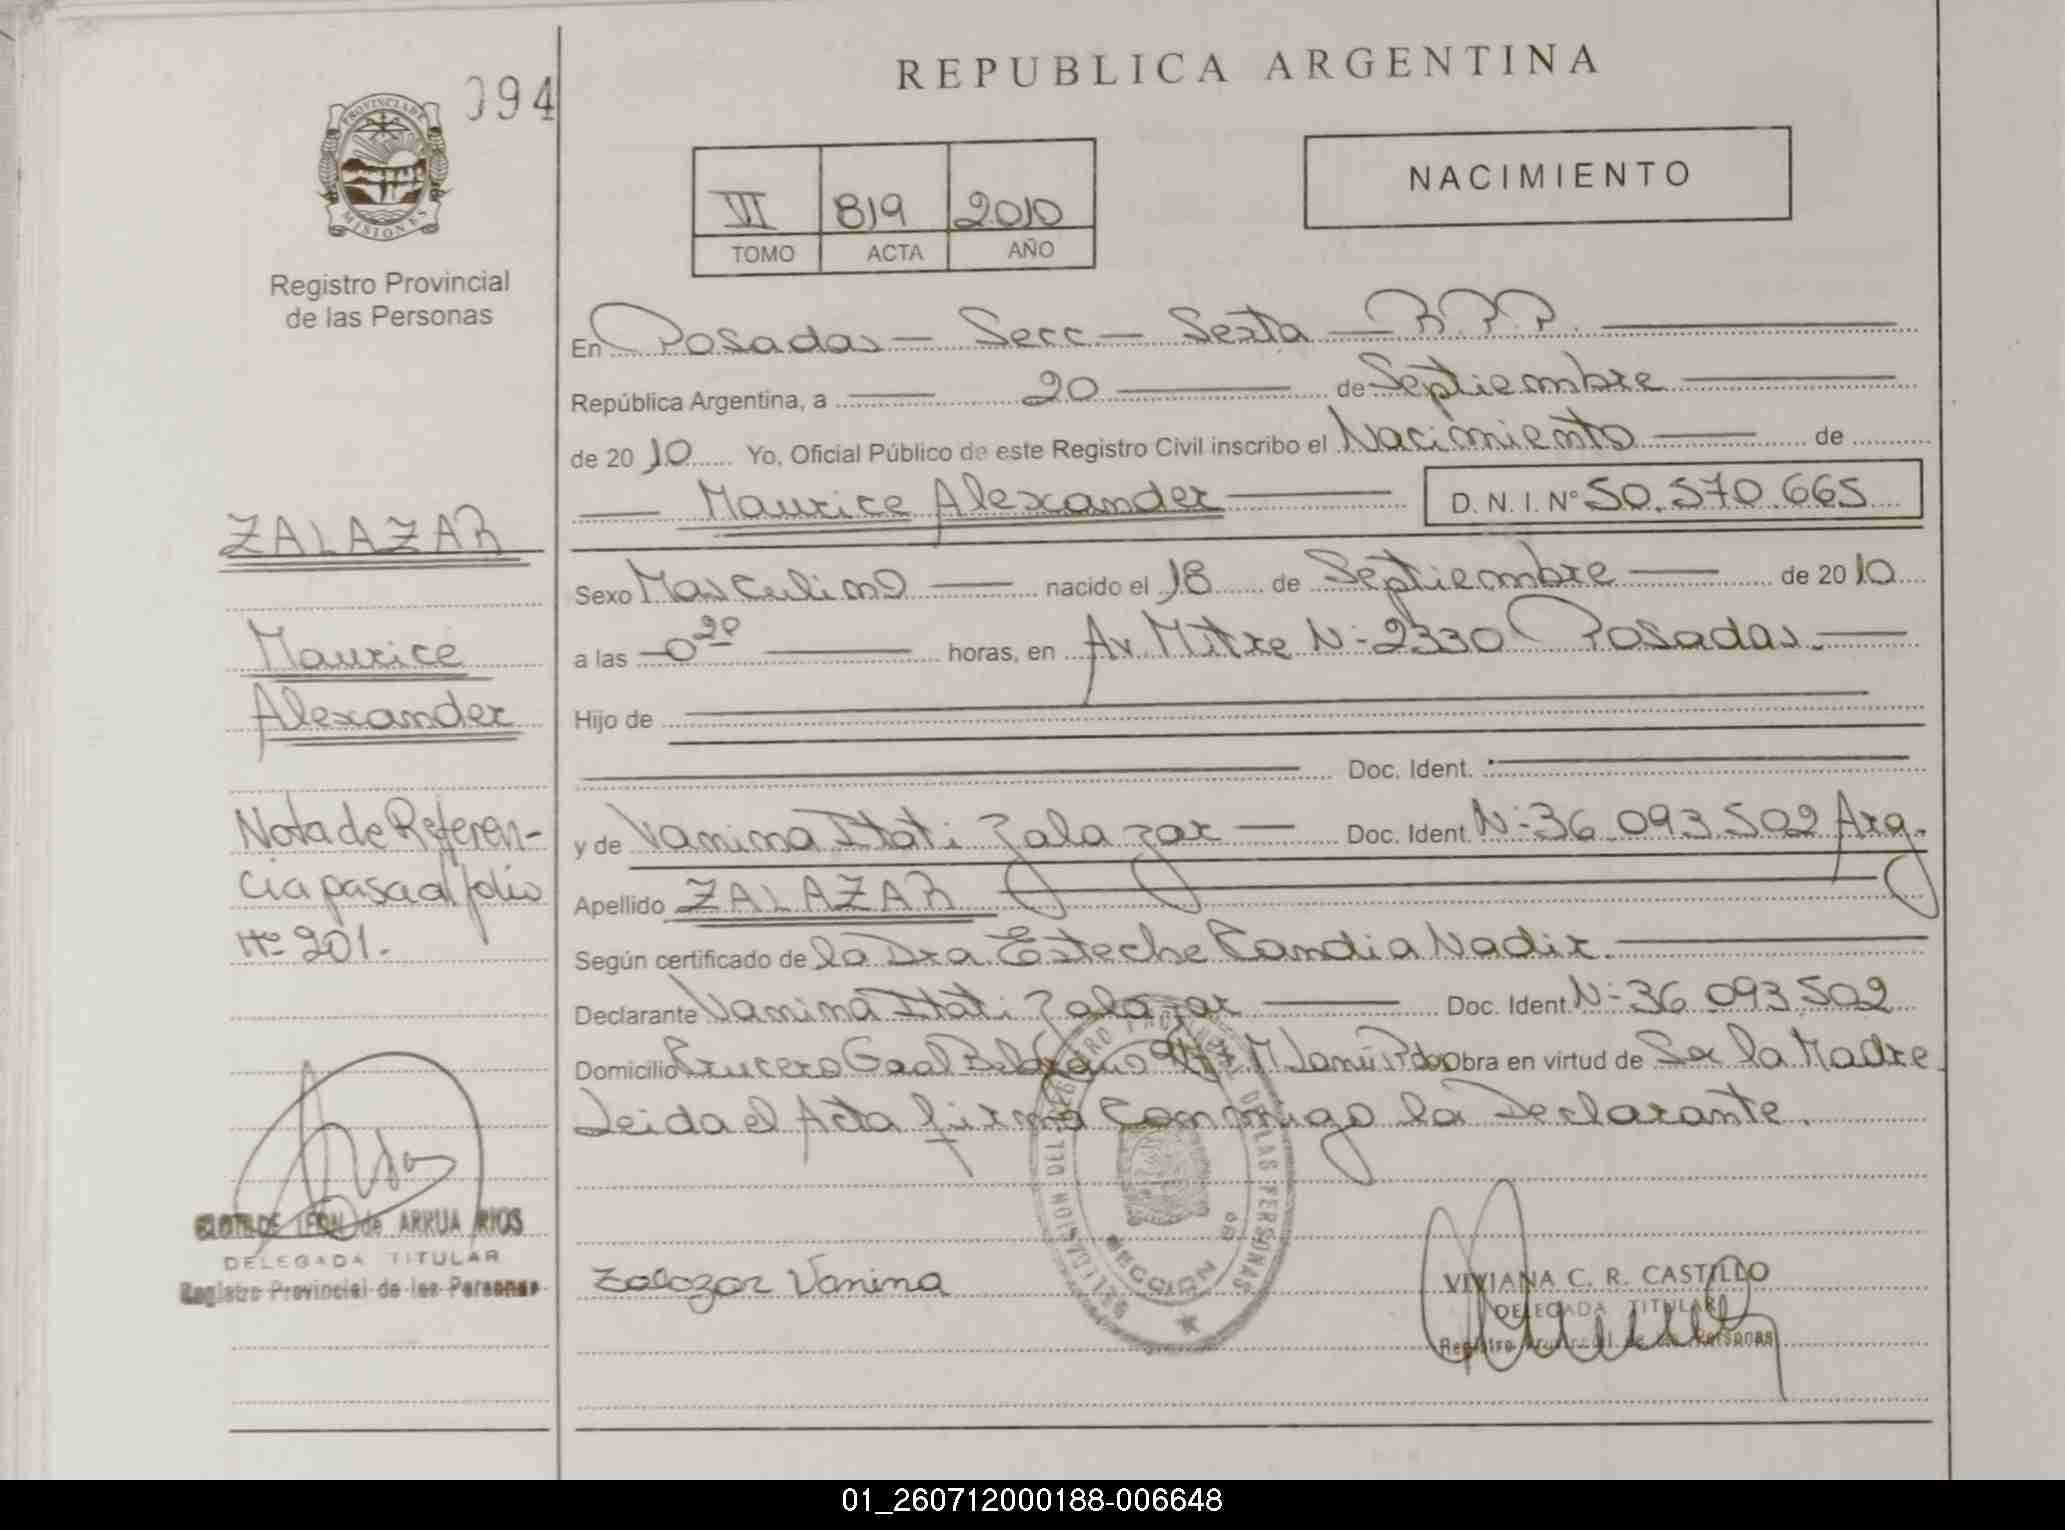 REPUBLICA ARGENTINA
094
PROVINCIA DE MISIONES
Registro Provincial
de las Personas
VI 819 2010
TOMO ACTA AÑO
NACIMIENTO
En Posadas - Secc - Sexta - R.P.P.
República Argentina, a 20 de Septiembre
de 2010 Yo, Oficial Público de este Registro Civil inscribo el Nacimiento de
Maurice Alexander D. N. I. Nº 50.570.665
Sexo Masculino nacido el 18 de Septiembre de 2010
a las 0 20 horas, en Av Mitre Nº 2330 Posadas.
Hijo de
Doc. Ident.
y de Vanina Itati Zalazar Doc. Ident. Nº 36.093.502 Arg.
Apellido ZALAZAR
Según certificado de la Dra Esteche Candia Nadir.
Declarante Vanina Itati Zalazar Doc. Ident Nº 36.093.502
Domicilio Crucero Gral Belgrano Obra en virtud de Ser la Madre
Leida el Acta firma Conmigo la Declarante.
Zalazar Vanina
DELEGACION DEL REGISTRO PROVINCIAL DE LAS PERSONAS
SECCION 6º
VIVIANA C. R. CASTILLO
DELEGADA TITULAR
Registro Provincial de las Personas
ZALAZAR
Maurice
Alexander
Nota de Referen-
cia pasa al folio
Nº 201.-
CLOTILDE LEON de ARRUA RIOS
DELEGADA TITULAR
Registro Provincial de las Personas
01_260712000188-006648